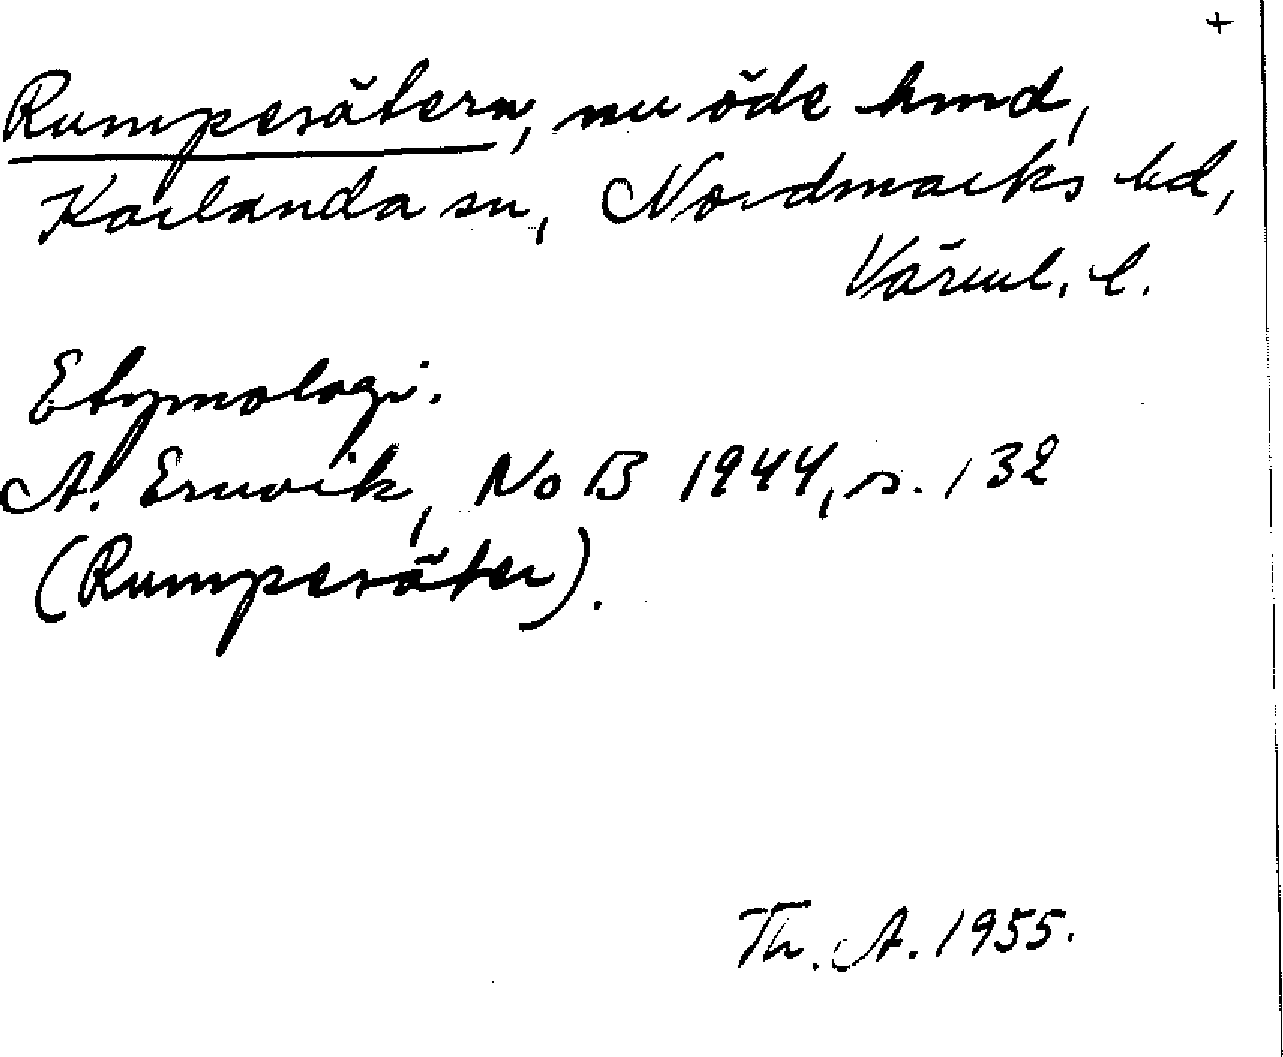 +
Rumpesätern, nu öde hmd,
Karlanda sn, Nordmarks hd,
Värml. l.
Etymologi.
A. Ernvik, NoB 1944, s. 132
(Rumpesäter).
Th. A. 1955.